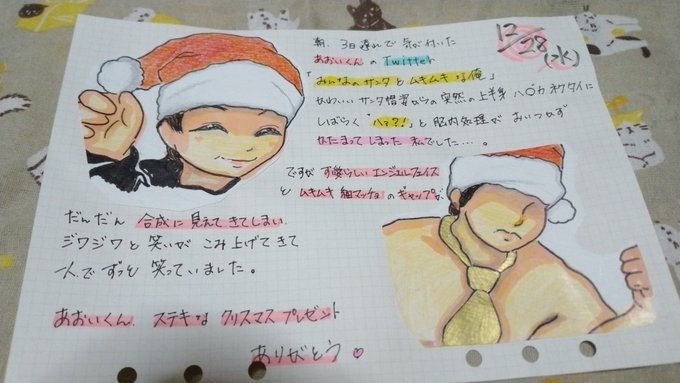 12/28(水)
朝、3日遅れで気が付いた
あおいくんの Twitter
「みんなのサンタとムキムキな俺」
かわいいサンタ帽姿からの突然の上半身ハ〇カネクタイに
しばらく「ハァ?!」と脳内処理がおいつかず
かたまってしまった私でした…。
ですが可愛らしいエンジェルフェイス
とムキムキ細マッチョのギャップが
だんだん 合成に見えてきてしまい
ジワジワと笑いがこみ上げてきて
一人でずっと笑っていました。
あおいくん、ステキなクリスマスプレゼント
ありがとう♡